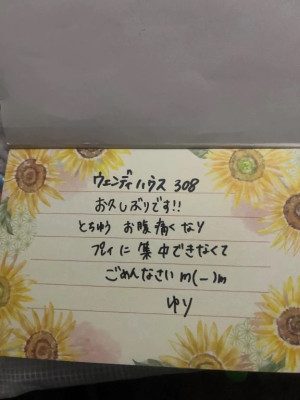 ウェンディハウス 308
お久しぶりです!!
とちゅう お腹 痛く なり
プレイに 集中できなくて
ごめんなさい m(_)m
ゆり